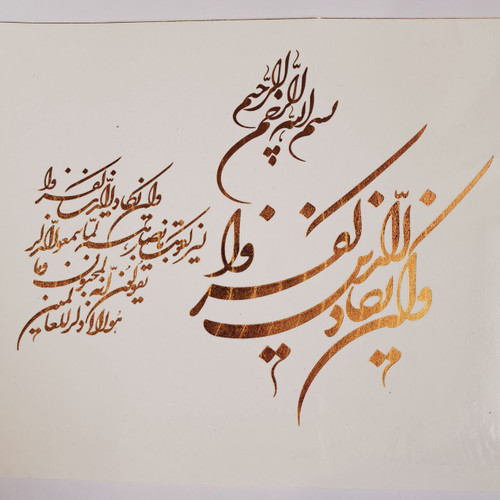 بسم الله الرحمن الرحیم
وان یکاد الذین کفروا
وان یکاد الذین کفروا
لیزلقونک بابصارهم لما سمعوا الذکر
یقولون انه لمجنون وما
هو الا ذکر للعالمین